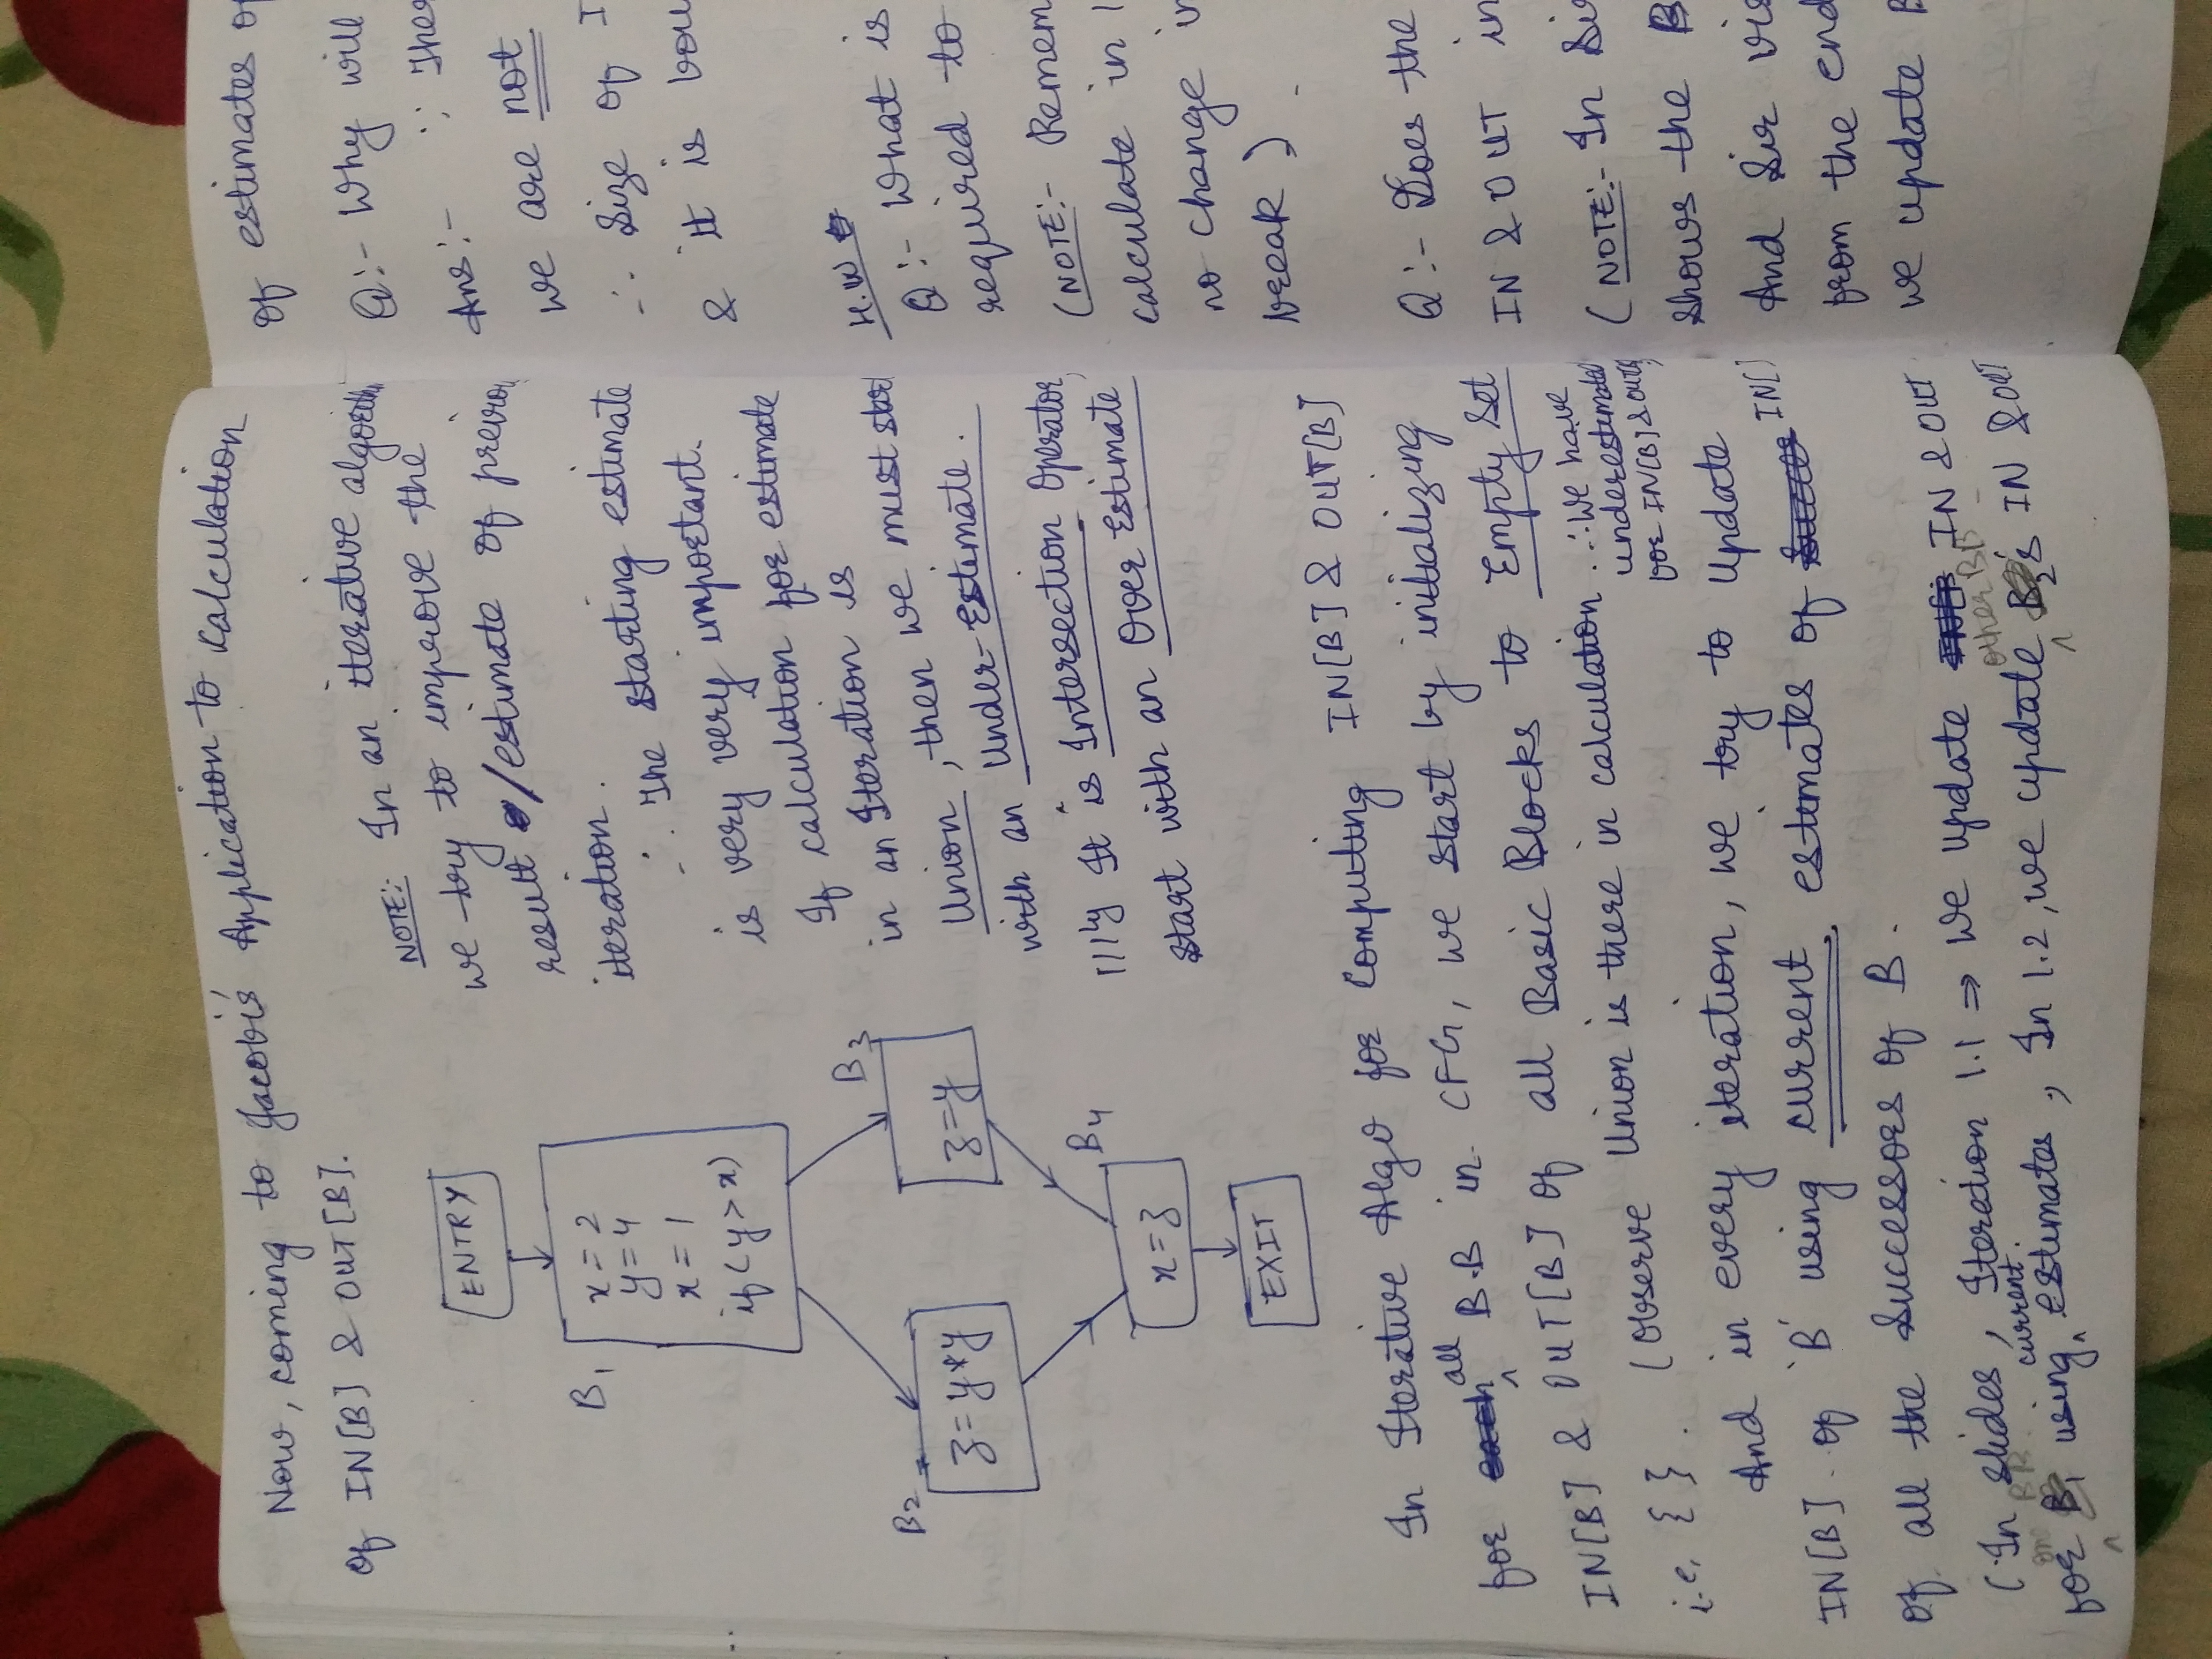 Now, coming to Jacobi's Application to Calculation
of IN[B] & OUT[B].
ENTRY
B1
x = 2
y = 4
x = 1
if (y > x)
B2
z = y * y
B3
z = y
B4
x = z
EXIT
NOTE:- In an iterative algorithm
we try to improve the
result /estimate of previou
iteration.
∴ The starting estimate
is very very important.
If calculation for estimate
in an Iteration is
Union, then we must start
with an Under-Estimate.
|||ly It is Intersection Operator,
start with an Over Estimate
In Iterative Algo for Computing IN[B] & OUT[B]
for all B.B in CFG, we start by initializing
IN[B] & OUT[B] of all Basic Blocks to Empty Set
i.e. { }. (Observe Union is there in calculation. ∴ We have
underestimated
for IN[B] & OUT[B]
And in every iteration, we try to update
IN[B] of 'B' using current estimates of IN[]
of all the Successors of B.
(In slides, Iteration 1.1 ⇒ We update IN & OUT
for one BB using current estimates, In 1.2, we update other BB's IN & OUT
of estimates of
Q:- Why will
Ans:- ∵ Ther
we are not
∴ Size of I
& it is bou
H.W
Q:- What is
required to
(NOTE:- Remem
calculate in 1
no change in
break)
Q:- Does the
IN & OUT in
(NOTE:- In Sir
shows the B
And Sir vis
from the end
we update B